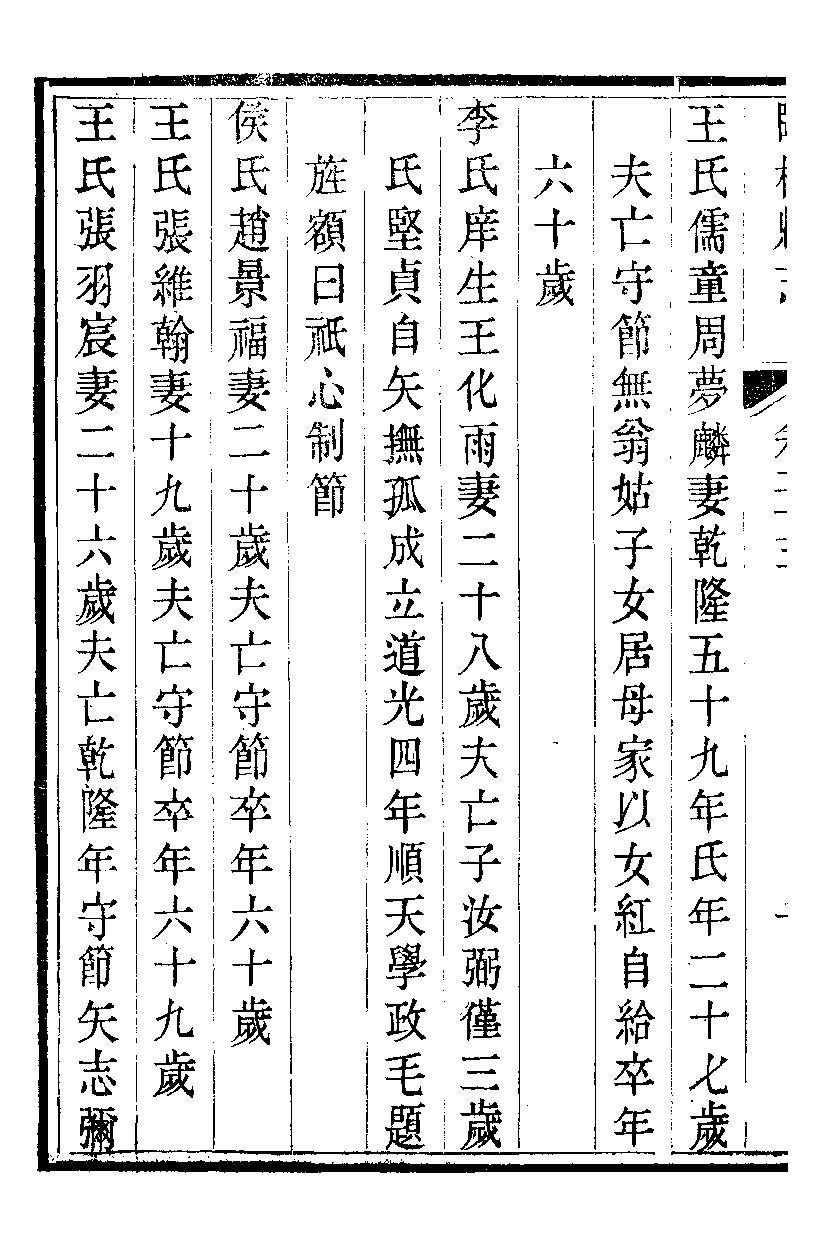 王氏儒童周夢麟妻乾隆五十九年氏年二十七歲
夫亡守節無翁姑子女居母家以女紅自給卒年
六十歲
李氏庠生王化雨妻二十八歲夫亡子汝弼僅三歲
氏堅貞自矢撫孤成立道光四年順天學政毛題
旌額曰祇心制節
侯氏趙景福妻二十歲夫亡守節卒年六十歲
王氏張維翰妻十九歲夫亡守節卒年六十九歲
王氏張羽宸妻二十六歲夫亡乾隆年守節矢志彌